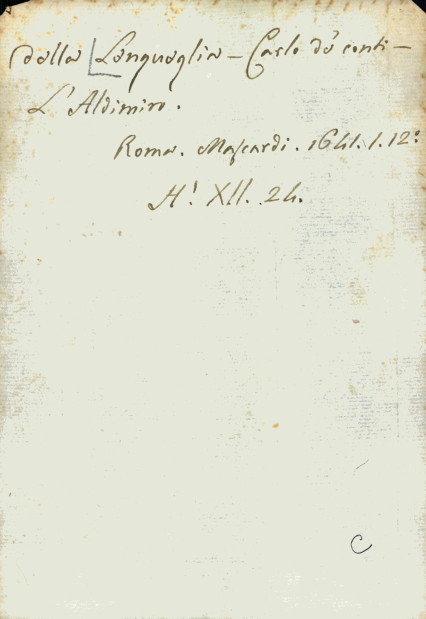 della Lengueglia - Carlo de' conti -
L'Aldimiro.
Roma. Mascardi. 1641. 1. 12°
H! XII. 24.
C